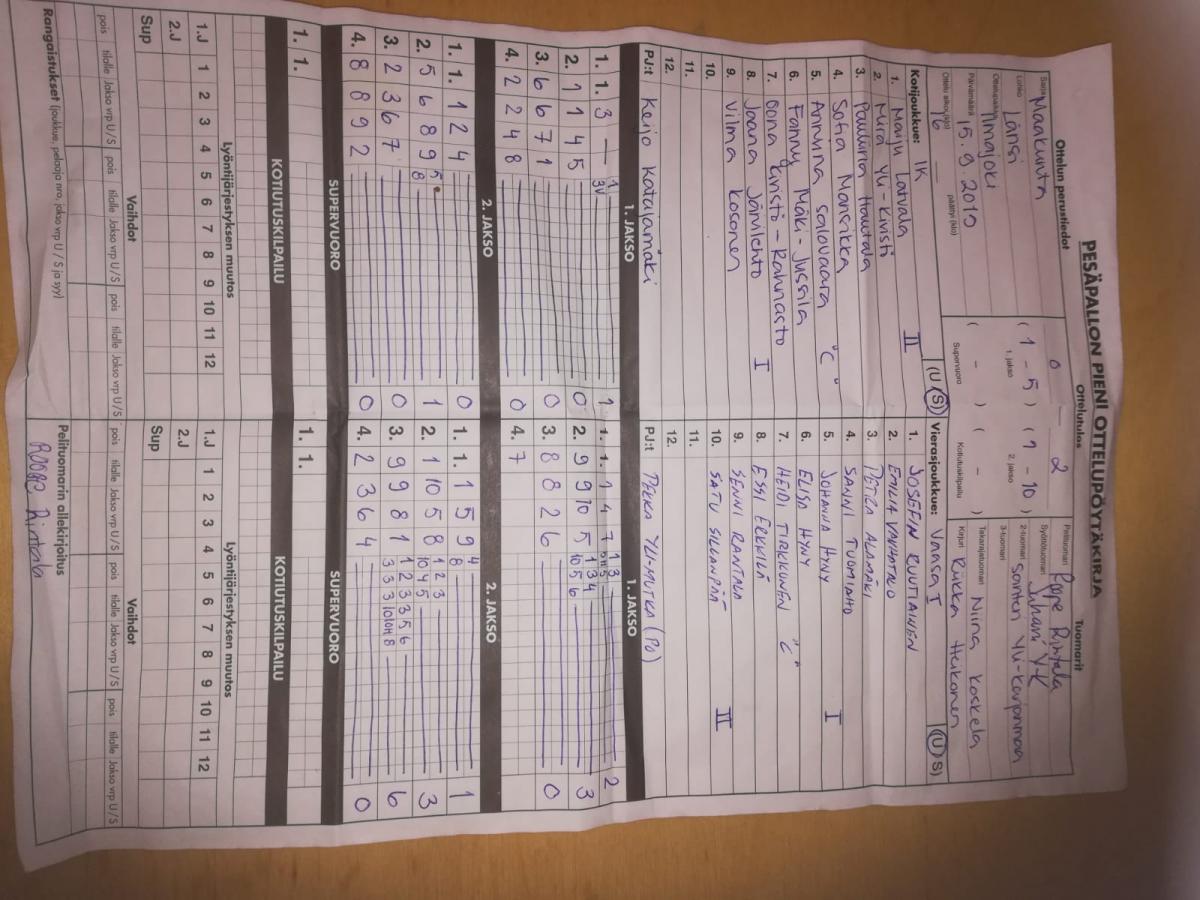 PESÄPALLON PIENI OTTELUPÖYTÄKIRJA
Ottelun perustiedot
Ottelutulos
Tuomarit
Sarja Maakunta
0 — 2
Pelituomari Roope Rintala
Lohko Länsi
(1 - 5) (1 - 10)
1. jakso 2. jakso
Syöttötuomari Juhani Y-K
Ottelupaikka Ilmajoki
2-tuomari
3-tuomari
Päivämäärä 15.9.2019
( - ) ( - )
Supervuoro Kotiutuskilpailu
Takarajatuomari Niina Koskela
Ottelu alkoi (klo) 16 päättyi (klo)
Kirjuri Riikka Heikonen
Kotijoukkue: IK (U S)
1. Marju Latvala II
2. Mira Yli-Kivistö
3. Pauliina Hautala
4. Sofia Mansikka
5. Annina Salovaara "C"
6. Fanny Mäki-Jussila
7. Oona Kivistö-Rahnasto
8. Jaana Järvilehto I
9. Vilma Kosonen
10.
11.
12.
PJ:t Keijo Katajamäki
Vierasjoukkue: Vaasa I (U S)
1. JOSEFIN RUUTIAINEN
2. EMILIA VANHATALO
3. PETRA ALAMÄKI
4. SANNI TUOMIAHO
5. JOHANNA HYNY I
6. ELISA HYNY
7. HEIDI TIRKKONEN "C"
8. ESSI ERKKILÄ
9. SENNI RANTALA
10. SATU SILLANPÄÄ II
11.
12.
PJ:t PEKKA YLI-MUTKA (PJ)
1. JAKSO
1. JAKSO
1. 1. 3 — 1 3V 1
2. 1 1 4 5 0
3. 6 6 7 1 0
4. 2 2 4 8 0
1. 1. 1 4 7 1 3 2
2. 9 9 10 5 1 3 4 10 5 6 3
3. 8 8 2 6 0
4. 7
2. JAKSO
2. JAKSO
1. 1. 1 2 4 0
2. 5 6 8 9 5 8 1
3. 2 3 6 7 0
4. 8 8 9 2 0
1. 1. 1 5 9 4 8 1
2. 1 10 5 8 1 2 3 10 4 5 3
3. 9 9 8 1 1 2 3 3 5 6 3 3 3 10 10 8 6
4. 2 3 6 4 0
SUPERVUORO
SUPERVUORO
1. 1.
1. 1.
KOTIUTUSKILPAILU
KOTIUTUSKILPAILU
Lyöntijärjestyksen muutos
1.J 1 2 3 4 5 6 7 8 9 10 11 12
2.J
Sup
Lyöntijärjestyksen muutos
1.J 1 2 3 4 5 6 7 8 9 10 11 12
2.J
Sup
Vaihdot
pois tilalle Jakso vrp U/S pois tilalle Jakso vrp U/S pois tilalle Jakso vrp U/S
Vaihdot
pois tilalle Jakso vrp U/S pois tilalle Jakso vrp U/S pois tilalle Jakso vrp U/S
Rangaistukset (joukkue, pelaaja nro, jakso vrp U / S ja syy)
Pelituomarin allekirjoitus
Roope Rintala